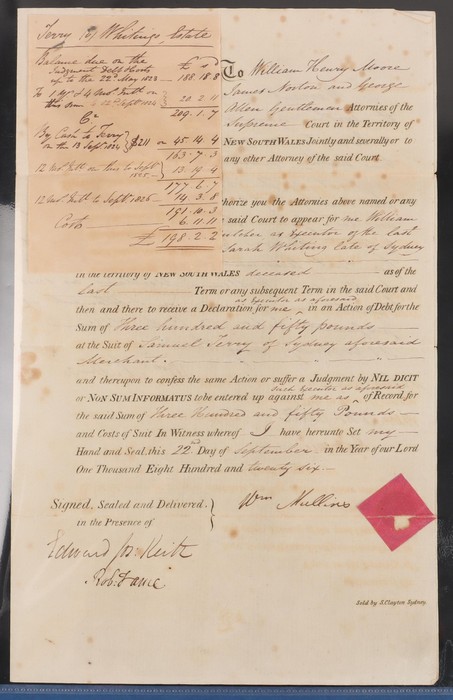 Terry vs Whitings Estate
Balance due on the £ s d
Judgment Debt & Costs
up to the 22d May 1823 188 18 8
To 1 yr & 4 mos Intt on
this sum to 12 Septr 1824 20 2 11
209 . 1 . 7
Cr
By Cash to Terry
on the 13 Septr 1824 $211 or 45 14 4
163 . 7 . 3
12 mos Intt on this to Septr
1825 13 . 19 4
177 . 6 . 7
12 mos Intt to Septr 1826 14 . 3 . 8
191 . 10 . 3
Costs 6 . 11 . 11
£ 198 . 2 . 2
To William Henry Moore
James Norton and George
Allen Gentlemen Attornies of the
Supreme Court in the Territory of
NEW SOUTH WALES Jointly and severally or to
any other Attorney of the said Court
horize you the Attornies above named or any
said Court to appear for me William
as Executor of the last
Sarah Whiting late of Sydney
in the Territory of NEW SOUTH WALES deceased as of the
last Term or any subsequent Term in the said Court and
as Executor as aforesaid
then and there to receive a Declaration for me in an Action of Debt for the
Sum of Three hundred and fifty pounds
at the Suit of Samuel Terry of Sydney aforesaid
Merchant.
and thereupon to confess the same Action or suffer a Judgment by NIL DICIT
such Executor as aforesaid
or NON SUM INFORMATUS to be entered up against me as of Record for
the said Sum of Three Hundred and fifty Pounds
and Costs of Suit In Witness whereof I have hereunto Set my
Hand and Seal, this 22nd Day of September in the Year of our Lord
One Thousand Eight Hundred and twenty six
Signed, Sealed and Delivered,
in the Presence of
Wm Mullins
Edward Jos Keith
Sold by S. Clayton Sydney.